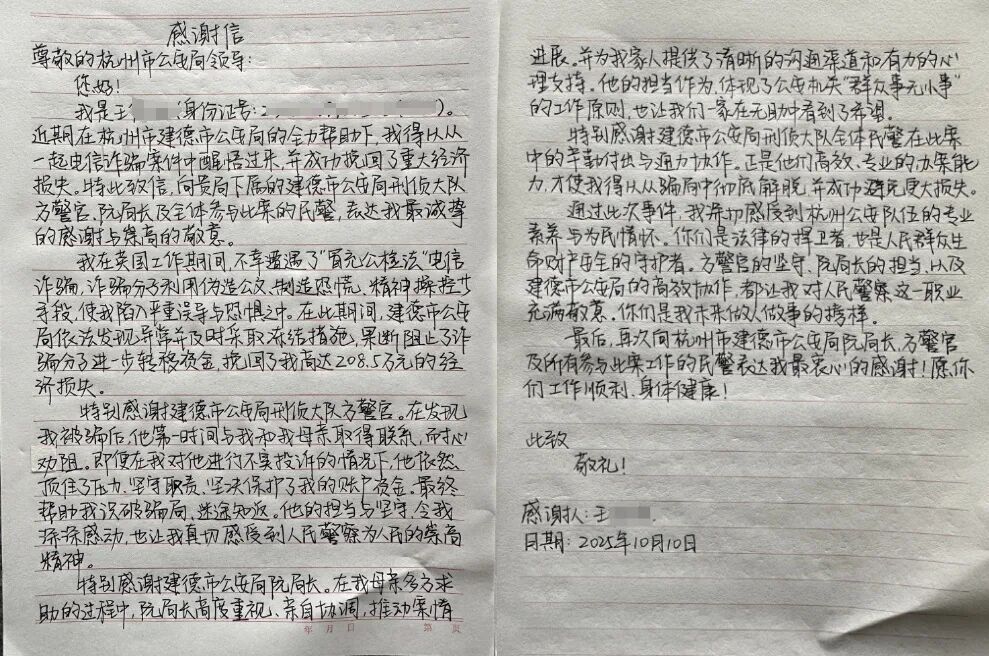 感谢信
尊敬的杭州市公安局领导：
您好！
我是王 身份证号：2 ）。
近期在杭州市建德市公安局的全力帮助下，我得以从
一起电信诈骗案件中醒悟过来，并成功挽回了重大经济
损失。特此致信，向贵局下属的建德市公安局刑侦大队
方警官、阮局长及全体参与此案的民警，表达我最诚挚
的感谢与崇高的敬意。
我在英国工作期间，不幸遭遇了“冒充公检法”电信
诈骗，诈骗分子利用伪造公文、制造恐慌、精神操控等
手段，使我陷入严重误导与恐惧之中。在此期间，建德市公安
局依法发现异常并及时采取冻结措施，果断阻止了诈
骗分子进一步转移资金，挽回了我高达208.5万元的经
济损失。
特别感谢建德市公安局刑侦大队方警官。在发现
我被骗后，他第一时间与我和我母亲取得联系，耐心
劝阻。即便在我对他进行不实投诉的情况下，他依然
顶住了压力、坚守职责、坚决保护了我的账户资金。最终
帮助我识破骗局、迷途知返。他的担当与坚守，令我
深深感动，也让我真切感受到人民警察为人民的崇高
精神。
特别感谢建德市公安局阮局长。在我母亲多方求
助的过程中，阮局长高度重视、亲自协调，推动案情
年 月 日 第 页
进展。并为我家人提供了清晰的沟通渠道和有力的心
理支持。他的担当作为，体现了公安机关“群众事无小事”
的工作原则，也让我们一家在无助中看到了希望。
特别感谢建德市公安局刑侦大队全体民警在此案
中的辛勤付出与通力协作。正是他们高效、专业的办案能
力，才使我得以从骗局中彻底解脱，并成功避免更大损失。
通过此次事件，我深切感受到杭州公安队伍的专业
素养与为民情怀。你们是法律的捍卫者，也是人民群众生
命财产安全的守护者。方警官的坚守、阮局长的担当，以及
建德市公安局的高效协作，都让我对人民警察这一职业
充满敬意。你们是我未来做人做事的榜样。
最后，再次向杭州市建德市公安局阮局长、方警官
及所有参与此案工作的民警表达我最衷心的感谢！愿你
们工作顺利、身体健康！
此致
敬礼！
感谢人：王
日期：2025年10月10日